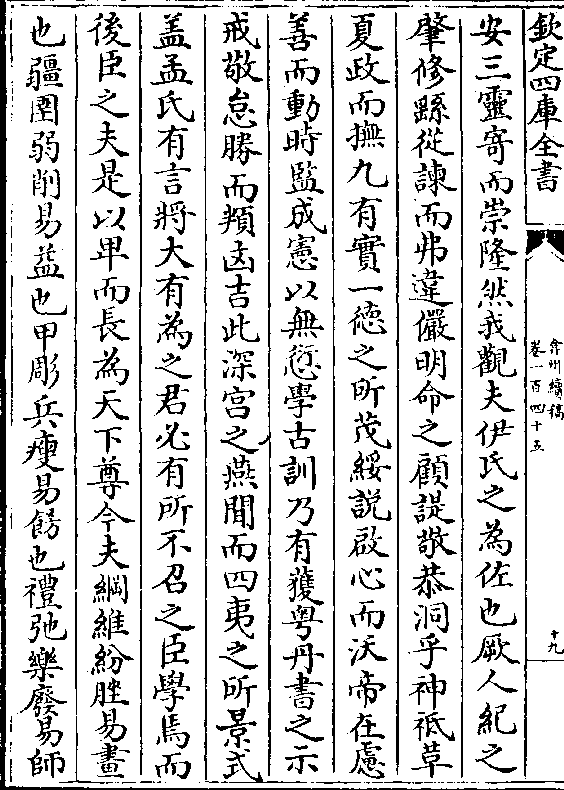 欽定四庫全書
弇州續稿
卷一百四十五
十九
安三靈寄而崇隆然我觀夫伊氏之為佐也厥人紀之
肇修繇從諫而弗違儼明命之顧諟敬恭洞乎神祗草
夏政而撫九有實一德之所茂綏説啟心而沃帝在慮
善而動時監成憲以無愆學古訓乃有獲粤丹書之示
戒敬怠勝而頖凶吉此深宫之燕閒而四夷之所景式
盖孟氏有言將大有為之君必有所不召之臣學焉而
後臣之夫是以卑而長為天下尊今夫綱維紛脞易畫
也疆圉弱削易益也甲彫兵瘦易餝也禮弛樂廢易師